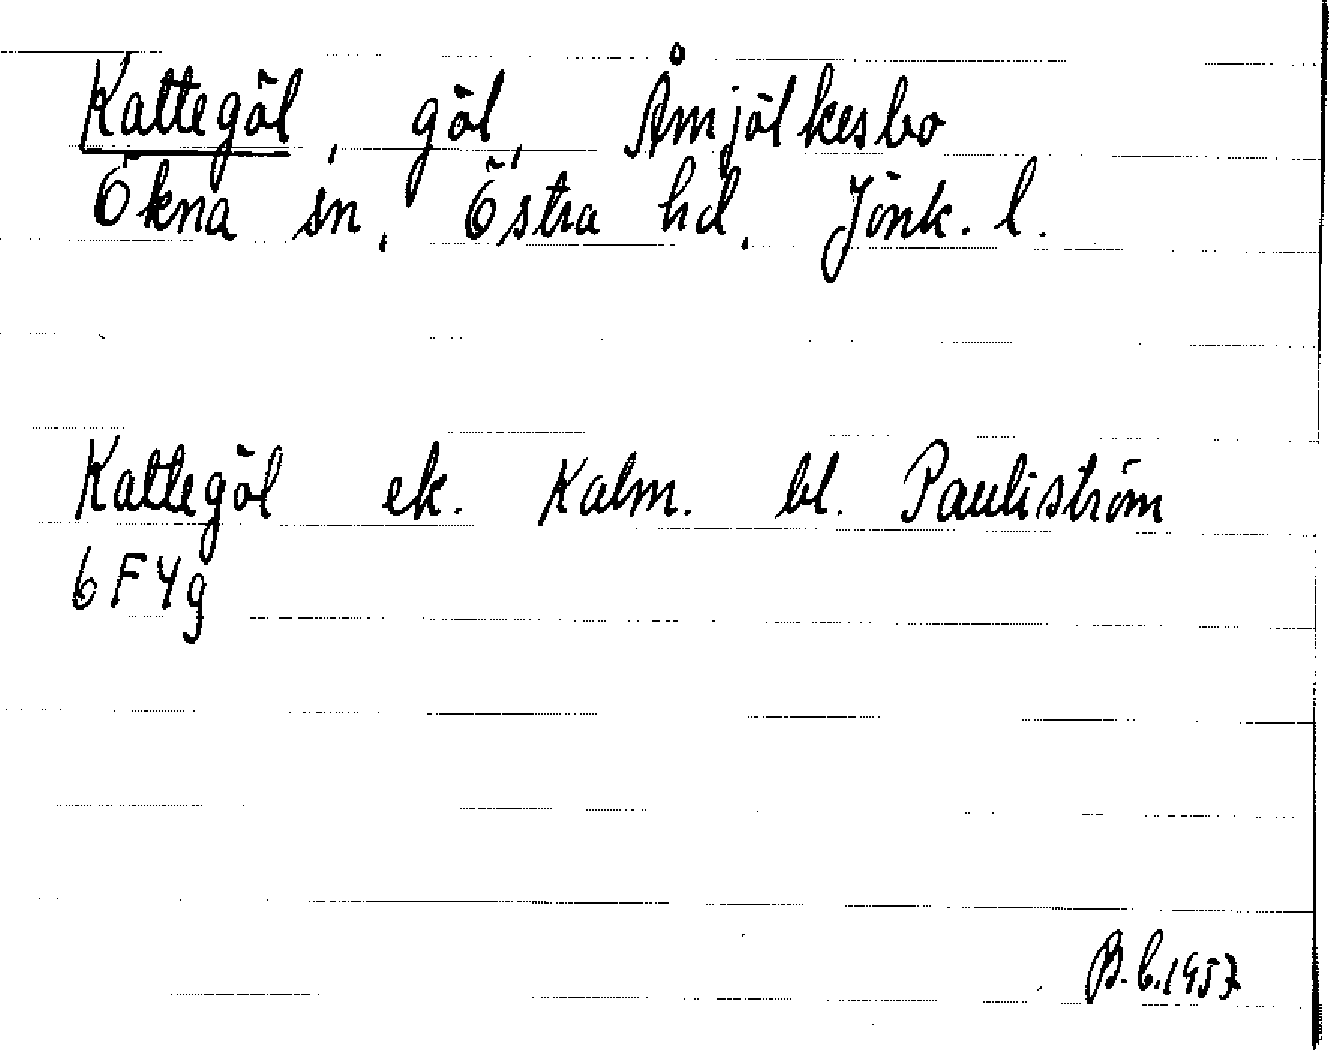 Kattegöl, göl, Åmjölkesbo
Ökna sn, Östra hd, Jönk. l.
Kattegöl ek. Kalm. bl. Pauliström
6F4g
B.C.1957